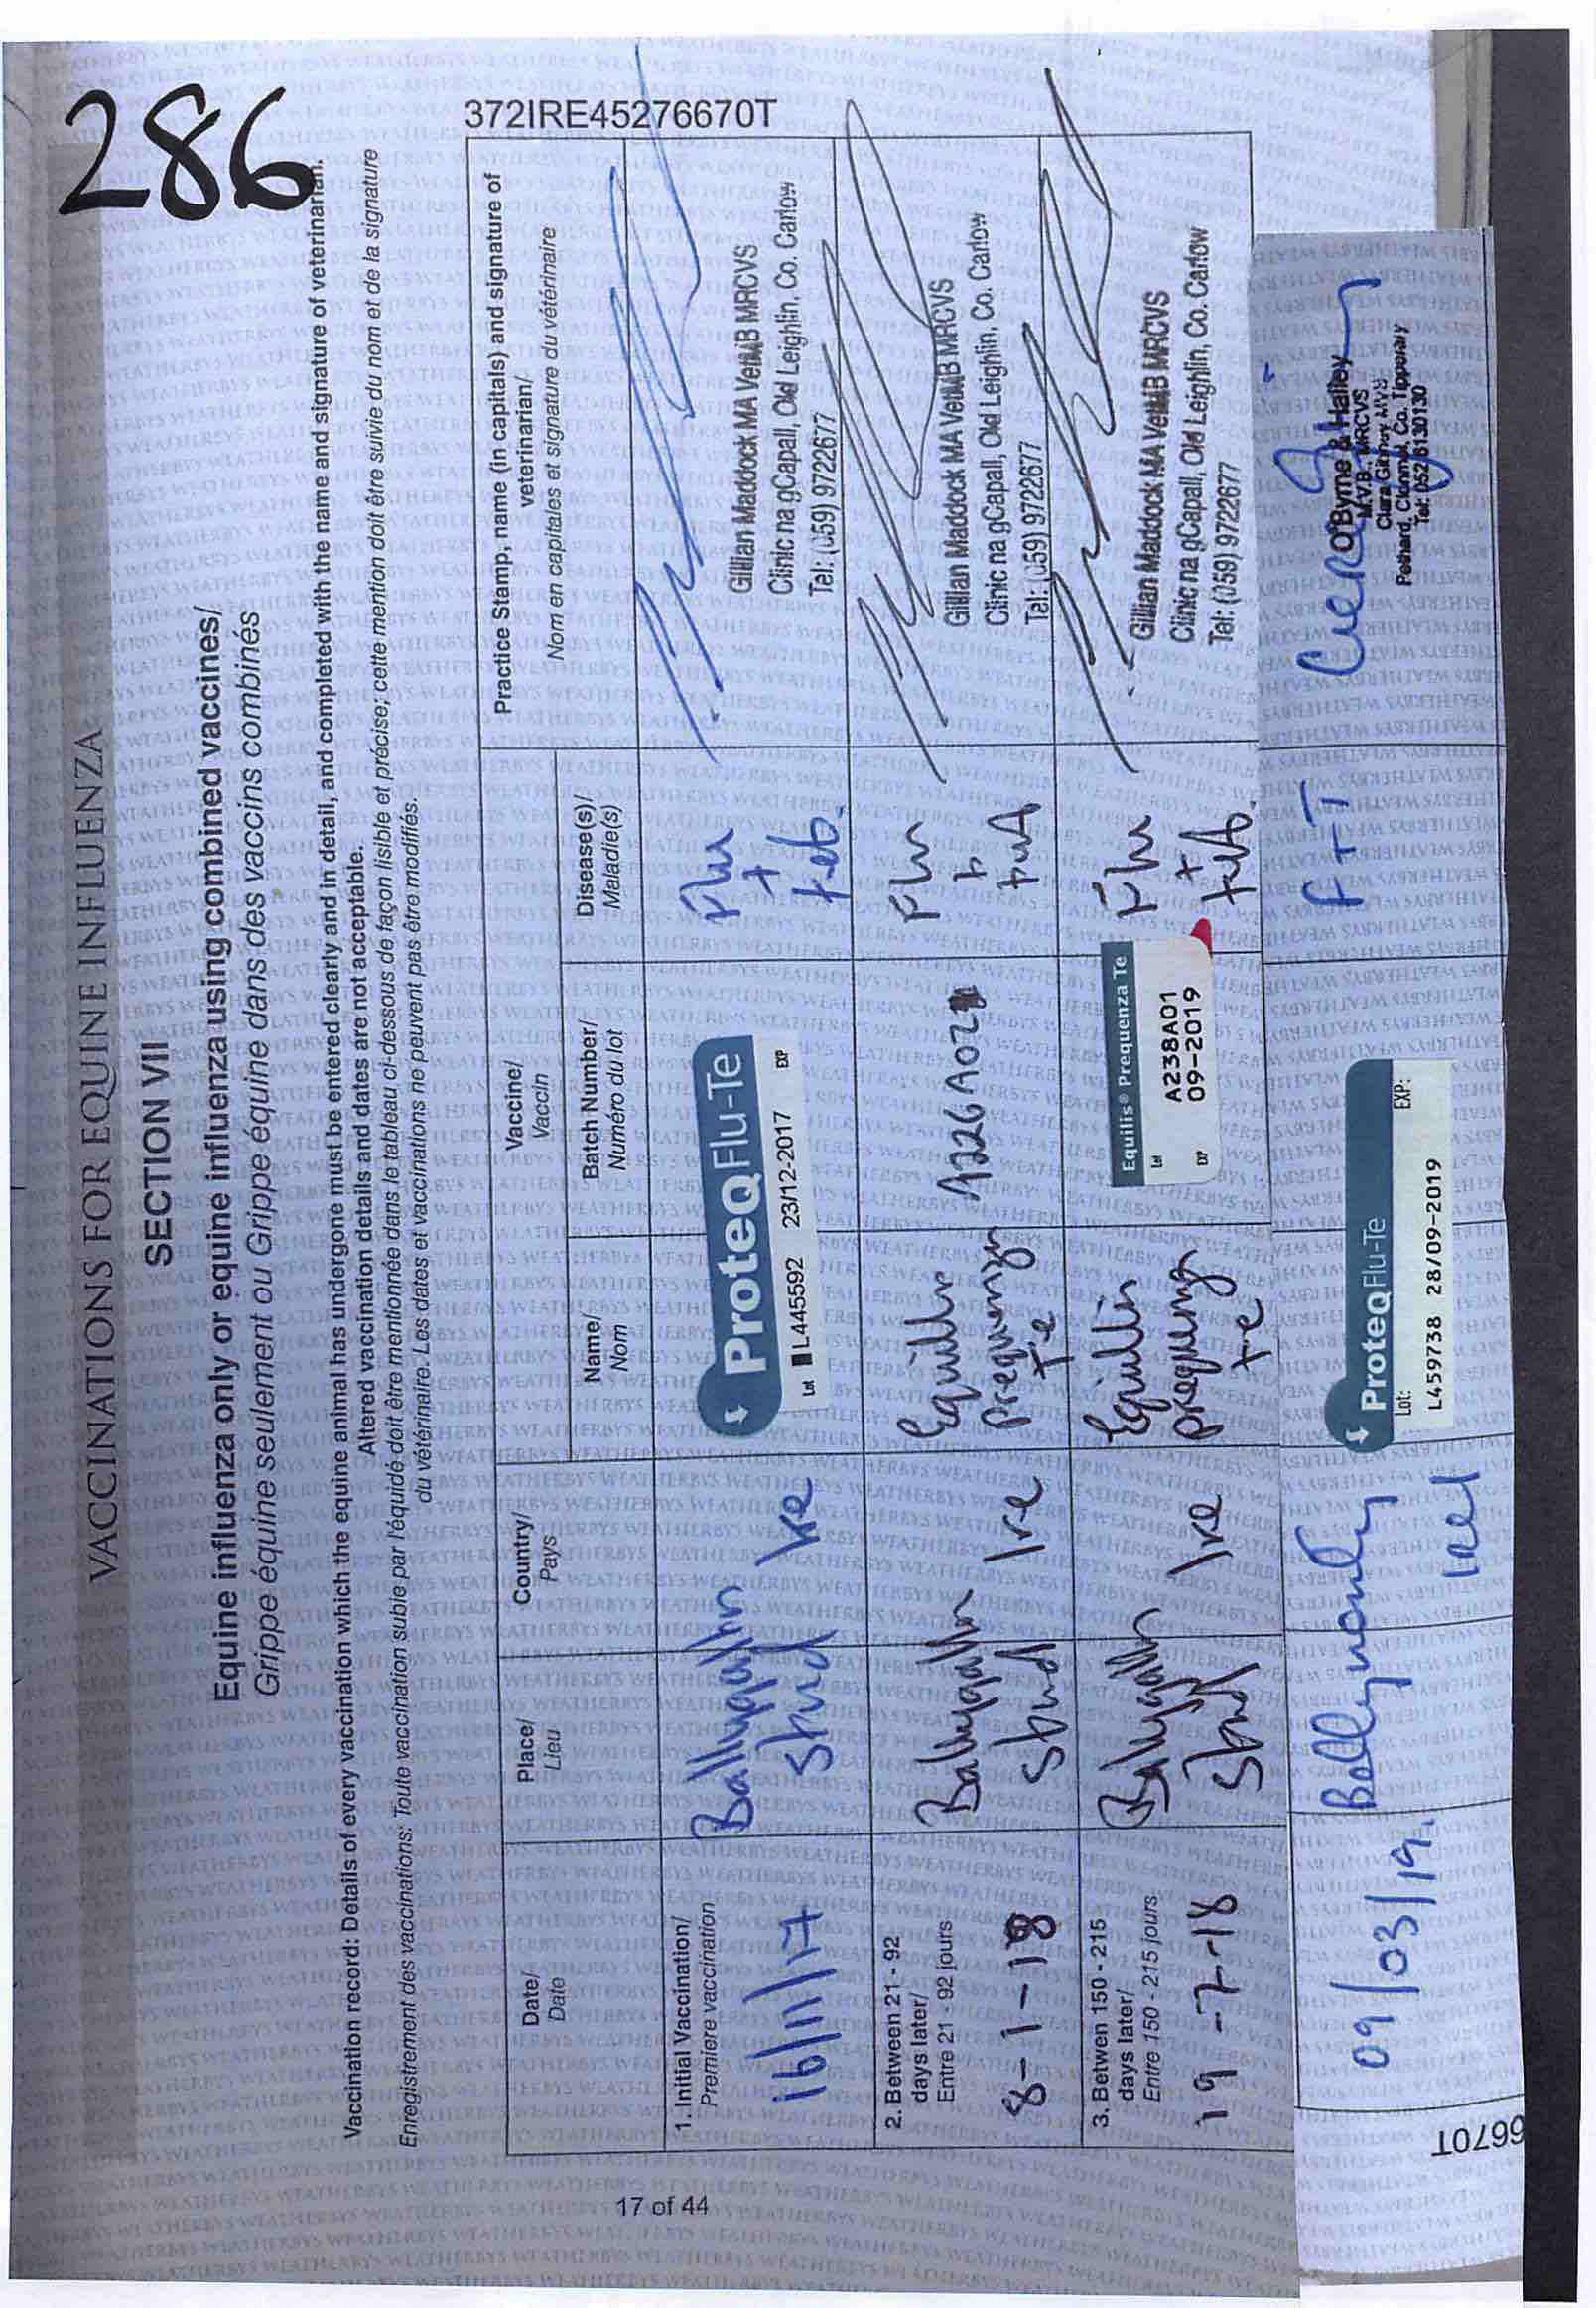 286
VACCINATIONS FOR EQUINE INFLUENZA
SECTION VII
Equine influenza only or equine influenza using combined vaccines/
Grippe équine seulement ou Grippe équine dans des vaccins combinés
Vaccination record: Details of every vaccination which the equine animal has undergone must be entered clearly and in detail, and completed with the name and signature of veterinarian.
Altered vaccination details and dates are not acceptable.
Enregistrement des vaccinations: Toute vaccination subie par l'équidé doit être mentionnée dans le tableau ci-dessous de façon lisible et précise; cette mention doit être suivie du nom et de la signature
du vétérinaire. Les dates et vaccinations ne peuvent pas être modifiés.
372IRE45276670T
Date/
Date
Place/
Lieu
Country/
Pays
Vaccine/
Vaccin
Name/
Nom
Batch Number/
Numéro du lot
Disease(s)/
Maladie(s)
Practice Stamp, name (in capitals) and signature of
veterinarian/
Nom en capitales et signature du vétérinaire
1. Initial Vaccination/
Premiere vaccination
16/11/17
Ballygallon
Stud
Ire
ProteqFlu-Te
Lot L445592 23/12-2017 EXP
Flu
+
tet.
Gillian Maddock MA VetMB MRCVS
Clinic na gCapall, Old Leighlin, Co. Carlow
Tel: (059) 9722677
2. Between 21 - 92
days later/
Entre 21 - 92 jours
8-1-18
Ballygallon
Stud
Ire
Equilis
prequenza
Te
A226A02
Flu
+
tet
Gillian Maddock MA VetMB MRCVS
Clinic na gCapall, Old Leighlin, Co. Carlow
Tel: (059) 9722677
3. Betwen 150 - 215
days later/
Entre 150 - 215 jours
19-7-18
Ballygallon
Stud
Ire
Equilis
prequenza
te
Equilis® Prequenza Te
Lot A238A01
EXP 09-2019
Flu
+
tet.
Gillian Maddock MA VetMB MRCVS
Clinic na gCapall, Old Leighlin, Co. Carlow
Tel: (059) 9722677
09/03/19.
Irel
ProteqFlu-Te
Lot: EXP:
L459738 28/09-2019
F+T
O'Byrne & Halley
M.V.B., MRCVS
Clara Gilroy MVB
Powhard, Clonmel, Co. Tipperary
Tel: 052 6130130
17 of 44
6670T